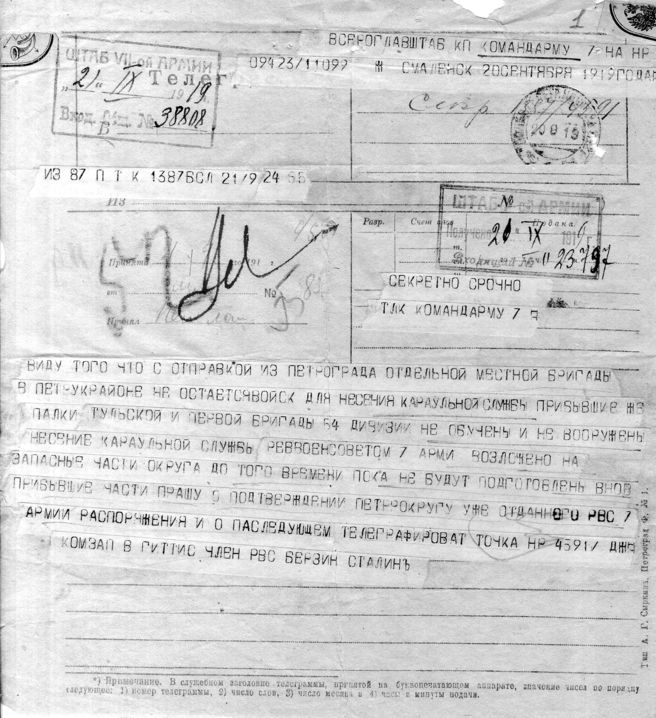 1
ВСЕРОГЛАВШТАБ КП КОМАНДАРМУ 7 НА НР
ШТАБ VII-ой АРМИИ
Телег
09423/11099 Ж СМАЛЕНСК 20СЕНТЯБРЯ 1919ГОДА
„21“ IX 1919 г.
Вход. № 38808
ИЗ 87 П Т К 1387ВСЛ 21/9 24
ИЗ
ШТАБ АРМИИ
Разр. Счет слов Подана
Получено 21 IX 191
Принята 191
Входящий № 23797
от
№
Принял
СЕКРЕТНО СРОЧНО
ТЛК КОМАНДАРМУ 7
ВИДУ ТОГО ЧТО С ОТПРАВКОЙ ИЗ ПЕТРОГРАДА ОТДЕЛЬНОЙ МЕСТНОЙ БРИГАДЬ
В ПЕТРУКРАЙОНЕ НЕ ОСТАЕТСЯВОЙСК ДЛЯ НЕСЕНИЯ КАРАУЛЬНОЙ СЛУЖБЬ ПРИБЫВШИЕ ЖЕ
ПАЛКИ ТУЛЬСКОЙ И ПЕРВОЙ БРИГАДЬ 54 ДИВИЗИИ НЕ ОБУЧЕНЫ И НЕ ВООРУЖЕНЫ
НЕСЕНИЕ КАРАУЛЬНОЙ СЛУЖБЬ РЕВВОЕНСОВЕТОМ 7 АРМИ ВОЗЛОЖЕНО НА
ЗАПАСНЫЕ ЧАСТИ ОКРУГА ДО ТОГО ВРЕМЕНИ ПОКА НЕ БУДУТ ПОДГОТОВЛЕНЬ ВНОВ
ПРИБЫВШИЕ ЧАСТИ ПРАШУ О ПОДТВЕРЖДЕНИИ ПЕТРРОКРУГУ УЖЕ ОТДАННОГО РВС 7
АРМИИ РАСПОРЯЖЕНИЯ И О ПАСЛЕДУЮЩЕМ ТЕЛЕГРАФИРОВАТ ТОЧКА НР 4591/ ДЖН
КОМЗАП В ГИТТИС ЧЛЕН РВС БЕРЗИН СТАЛИНЪ
Тип. А. Г. Сыркина, Петроград
*) Примечание. В служебном заголовке телеграммы, принятой на буквопечатающем аппарате, значение чисел по порядку
следующее: 1) номер телеграммы, 2) число слов, 3) число месяца и 4) часы и минуты подачи.